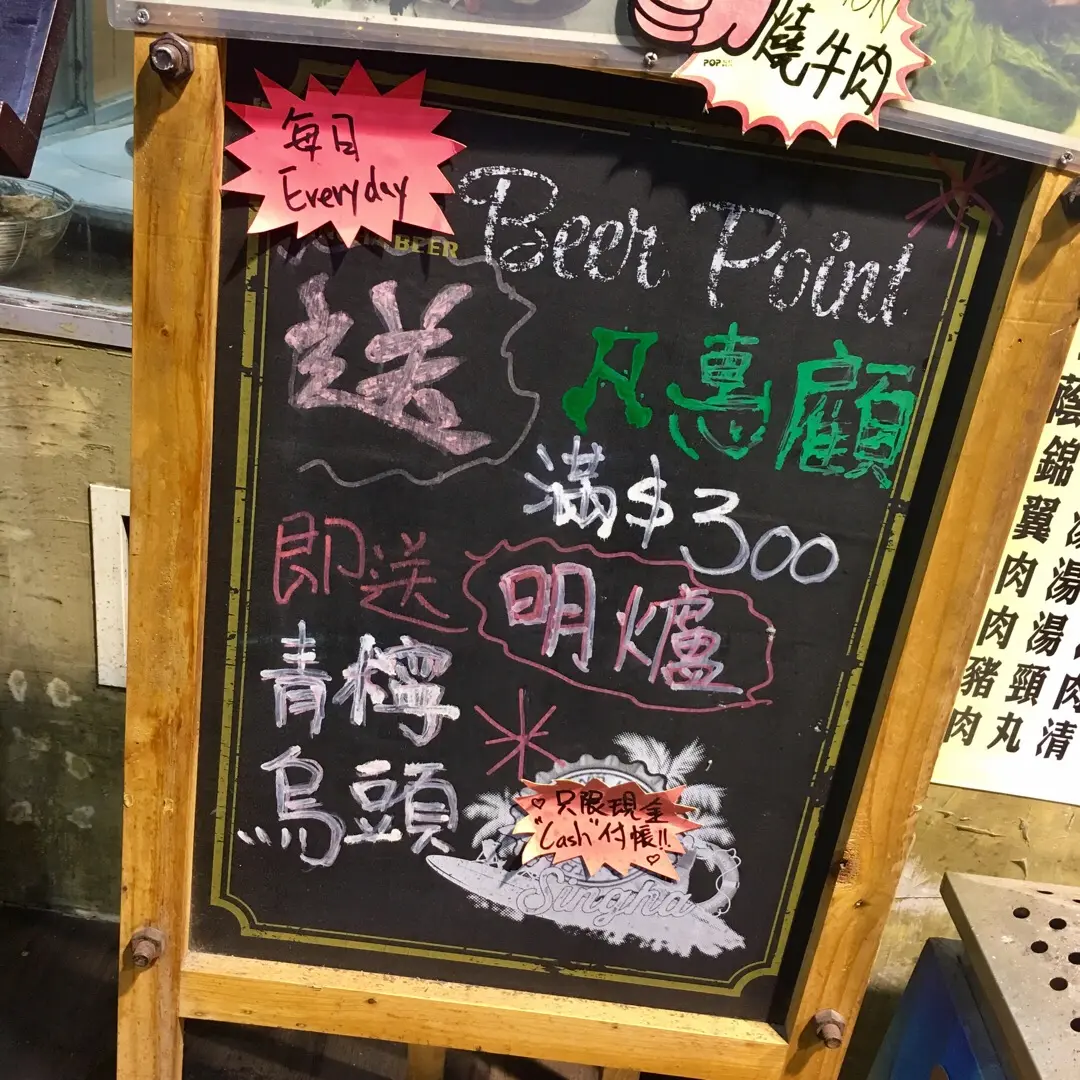 燒牛肉
POP
每日
Everyday
BEER
Beer Point
送
凡惠顧
滿$300
即送
明爐
青檸
烏頭
只限現金
"Cash"付帳!!
Singha
蔭
錦
翼
肉湯
肉湯
豬頸肉
肉丸清